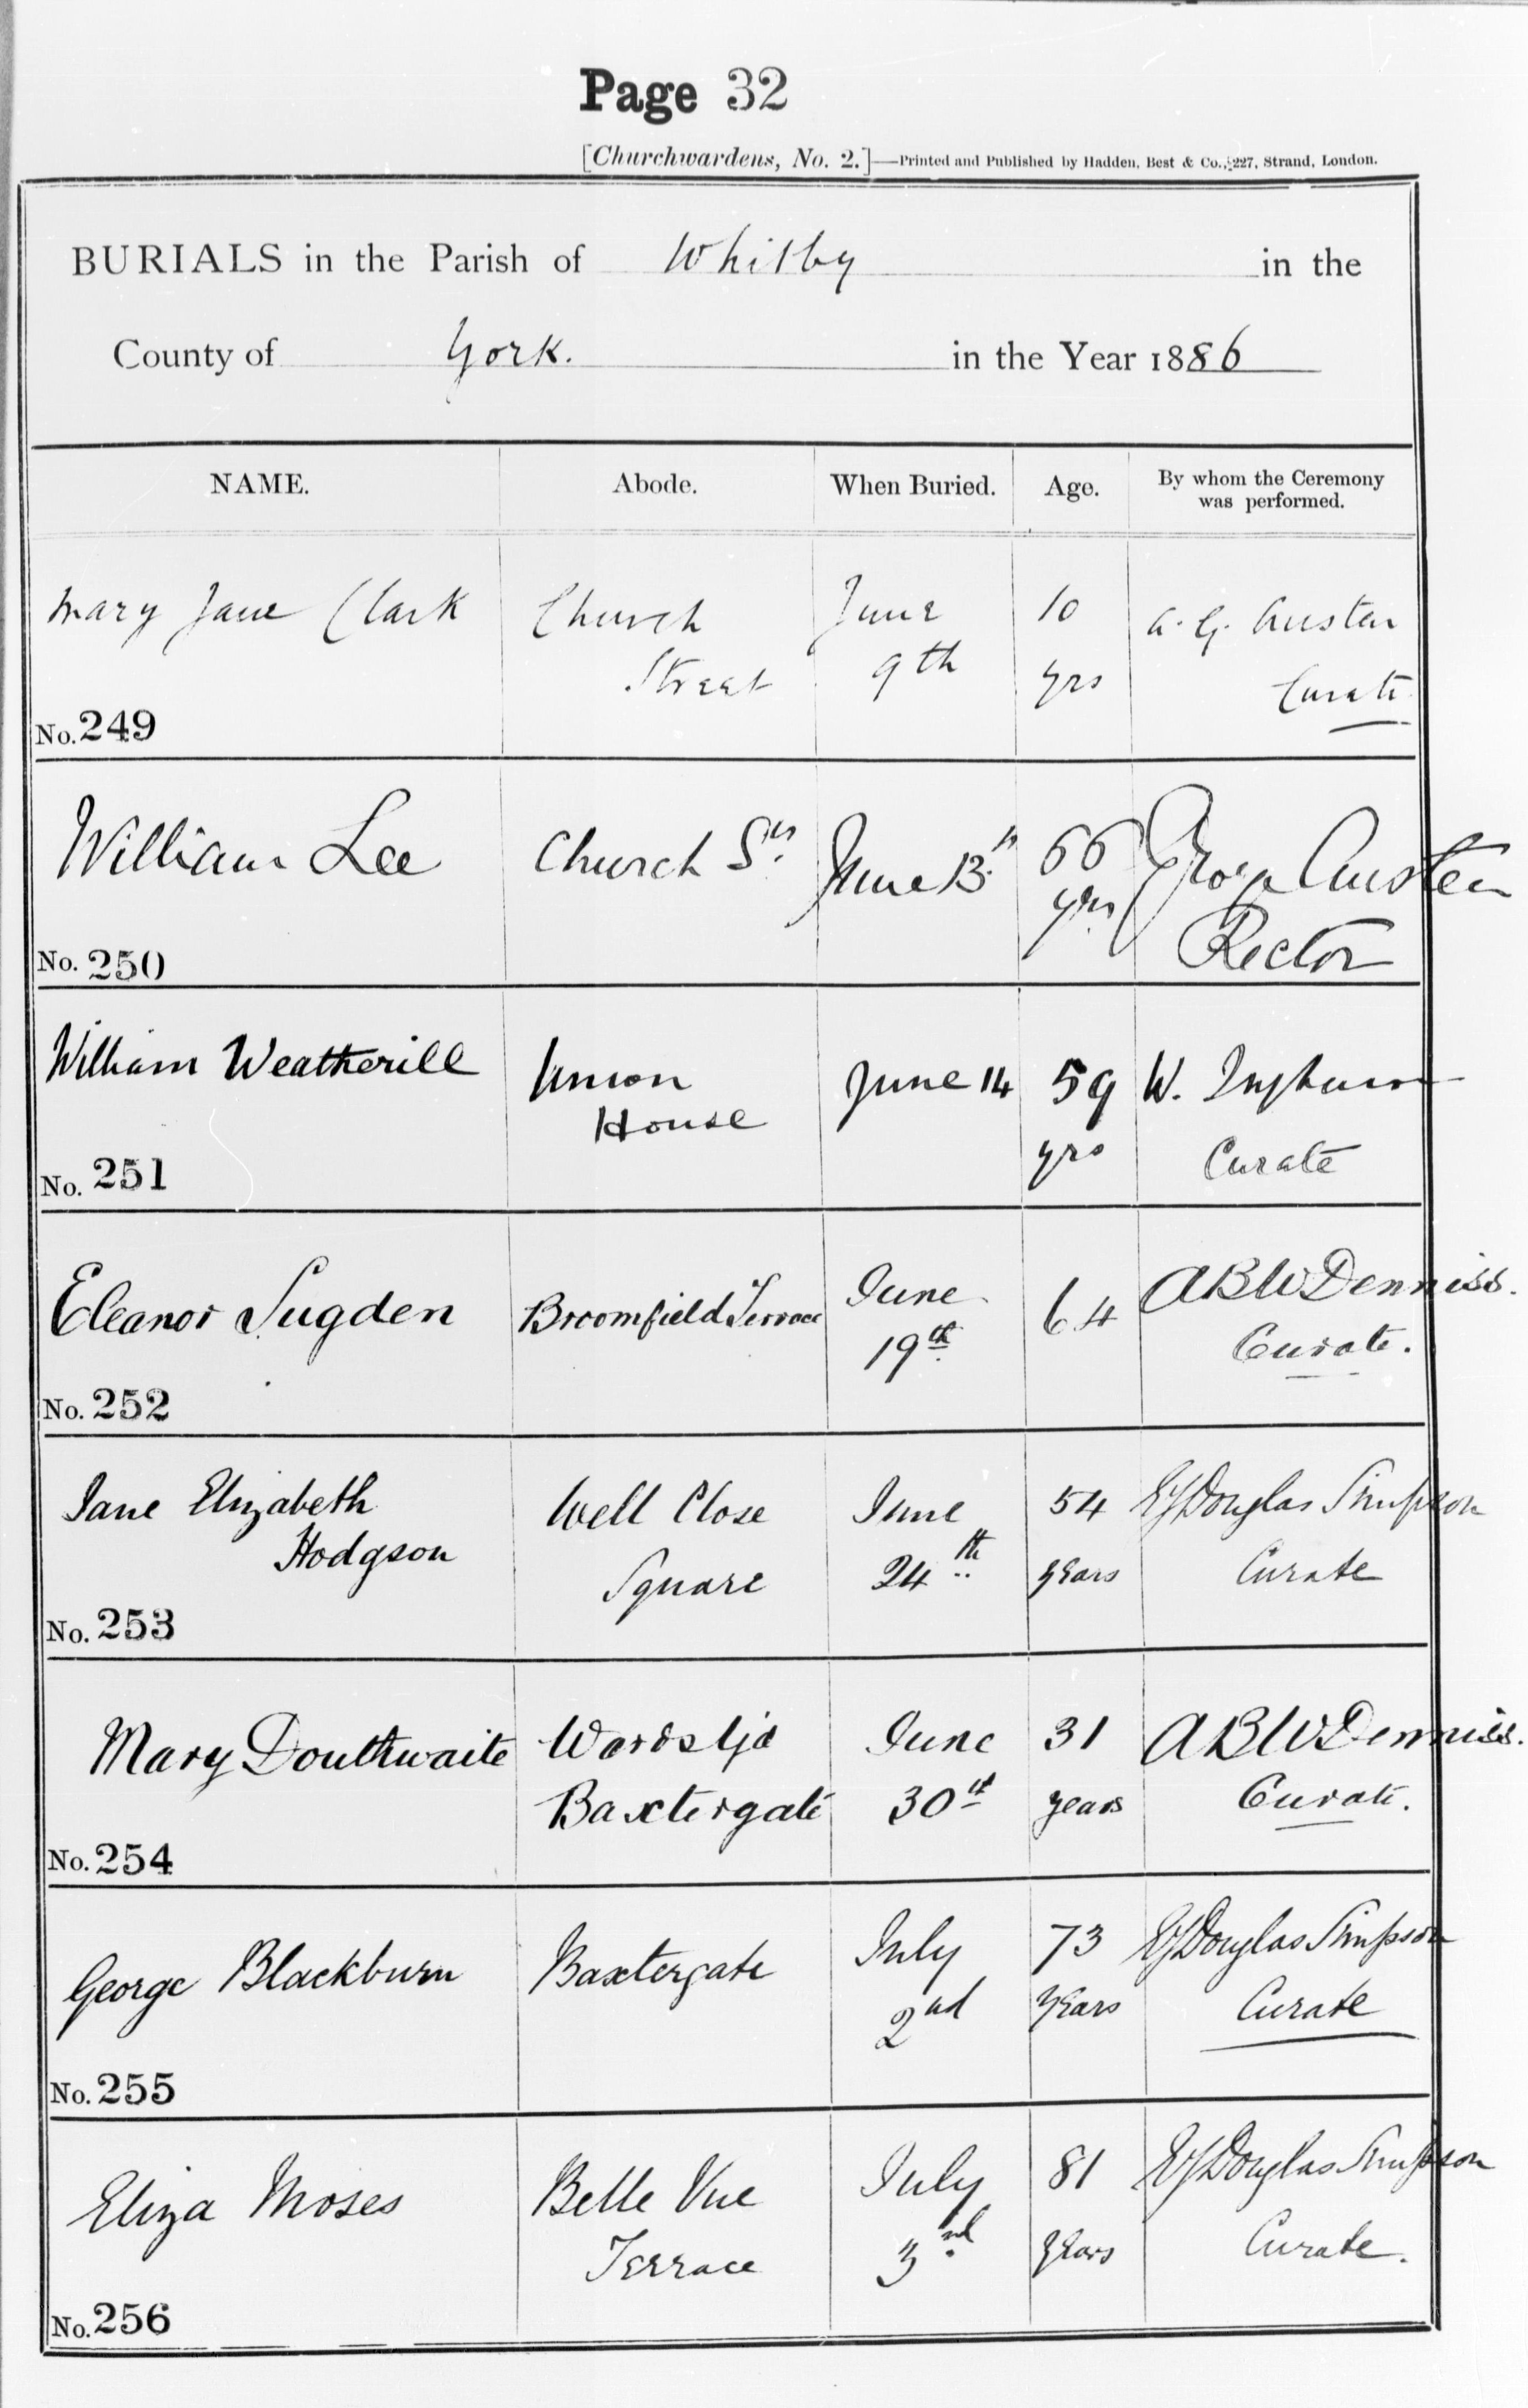 Page 32
[Churchwardens, No. 2.]—Printed and Published by Hadden, Best & Co., 227, Strand, London.
BURIALS in the Parish of Whitby in the
County of York. in the Year 1886
NAME. Abode. When Buried. Age. By whom the Ceremony was performed.
Mary Jane Clark Church June 10 A. G. Austen
Street 9th yrs Curate
No. 249
William Lee Church St. June 13th 66 George Austen
yrs Rector
No. 250
William Weatherill Union June 14 59 W. Ingham
House yrs Curate
No. 251
Eleanor Sugden Broomfield Terrace June 64 ABW Denniss.
19th Curate.
No. 252
Jane Elizabeth Well Close June 54 Douglas Simpson
Hodgson Square 24th years Curate
No. 253
Mary Douthwaite Wards Yd June 31 ABW Denniss.
Baxtergate 30th years Curate.
No. 254
George Blackburn Baxtergate July 73 Douglas Simpson
2nd years Curate
No. 255
Eliza Moses Belle Vue July 81 Douglas Simpson
Terrace 3rd years Curate.
No. 256